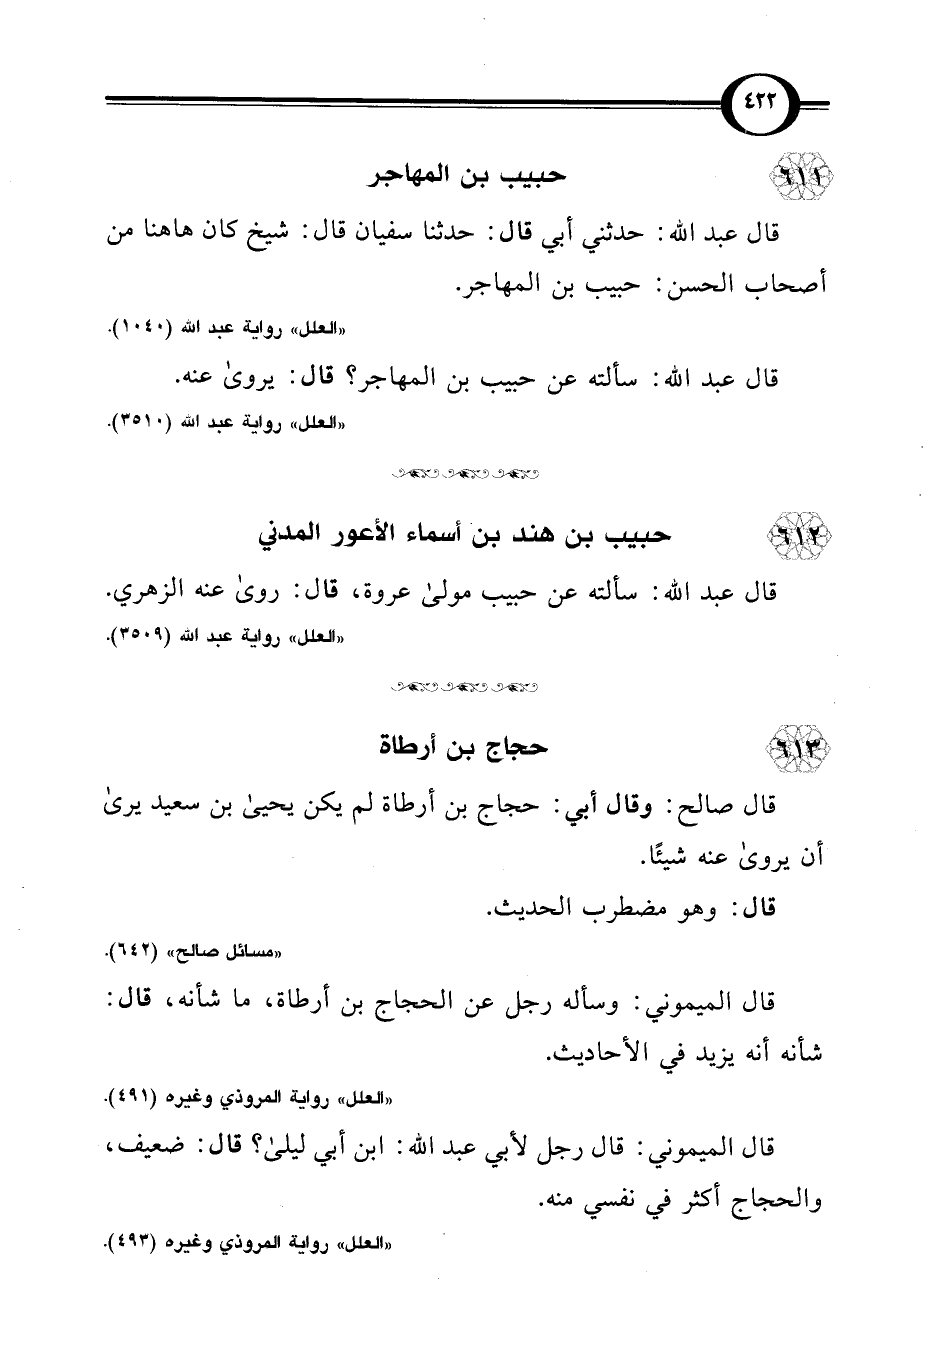 ٤٢٢
٦١١ حبيب بن المهاجر
قال عبد الله: حدثني أبي قال: حدثنا سفيان قال: شيخ كان هاهنا من
أصحاب الحسن: حبيب بن المهاجر.
«العلل» رواية عبد الله (١٠٤٠).
قال عبد الله: سألته عن حبيب بن المهاجر؟ قال: يروىٰ عنه.
«العلل» رواية عبد الله (٣٥١٠).
٦١٢ حبيب بن هند بن أسماء الأعور المدني
قال عبد الله: سألته عن حبيب مولىٰ عروة، قال: روىٰ عنه الزهري.
«العلل» رواية عبد الله (٣٥٠٩).
٦١٣ حجاج بن أرطاة
قال صالح: وقال أبي: حجاج بن أرطاة لم يكن يحيىٰ بن سعيد يرىٰ
أن يروىٰ عنه شيئًا.
قال: وهو مضطرب الحديث.
«مسائل صالح» (٦٤٢).
قال الميموني: وسأله رجل عن الحجاج بن أرطاة، ما شأنه، قال:
شأنه أنه يزيد في الأحاديث.
«العلل» رواية المروذي وغيره (٤٩١).
قال الميموني: قال رجل لأبي عبد الله: ابن أبي ليلىٰ؟ قال: ضعيف،
والحجاج أكثر في نفسي منه.
«العلل» رواية المروذي وغيره (٤٩٣).